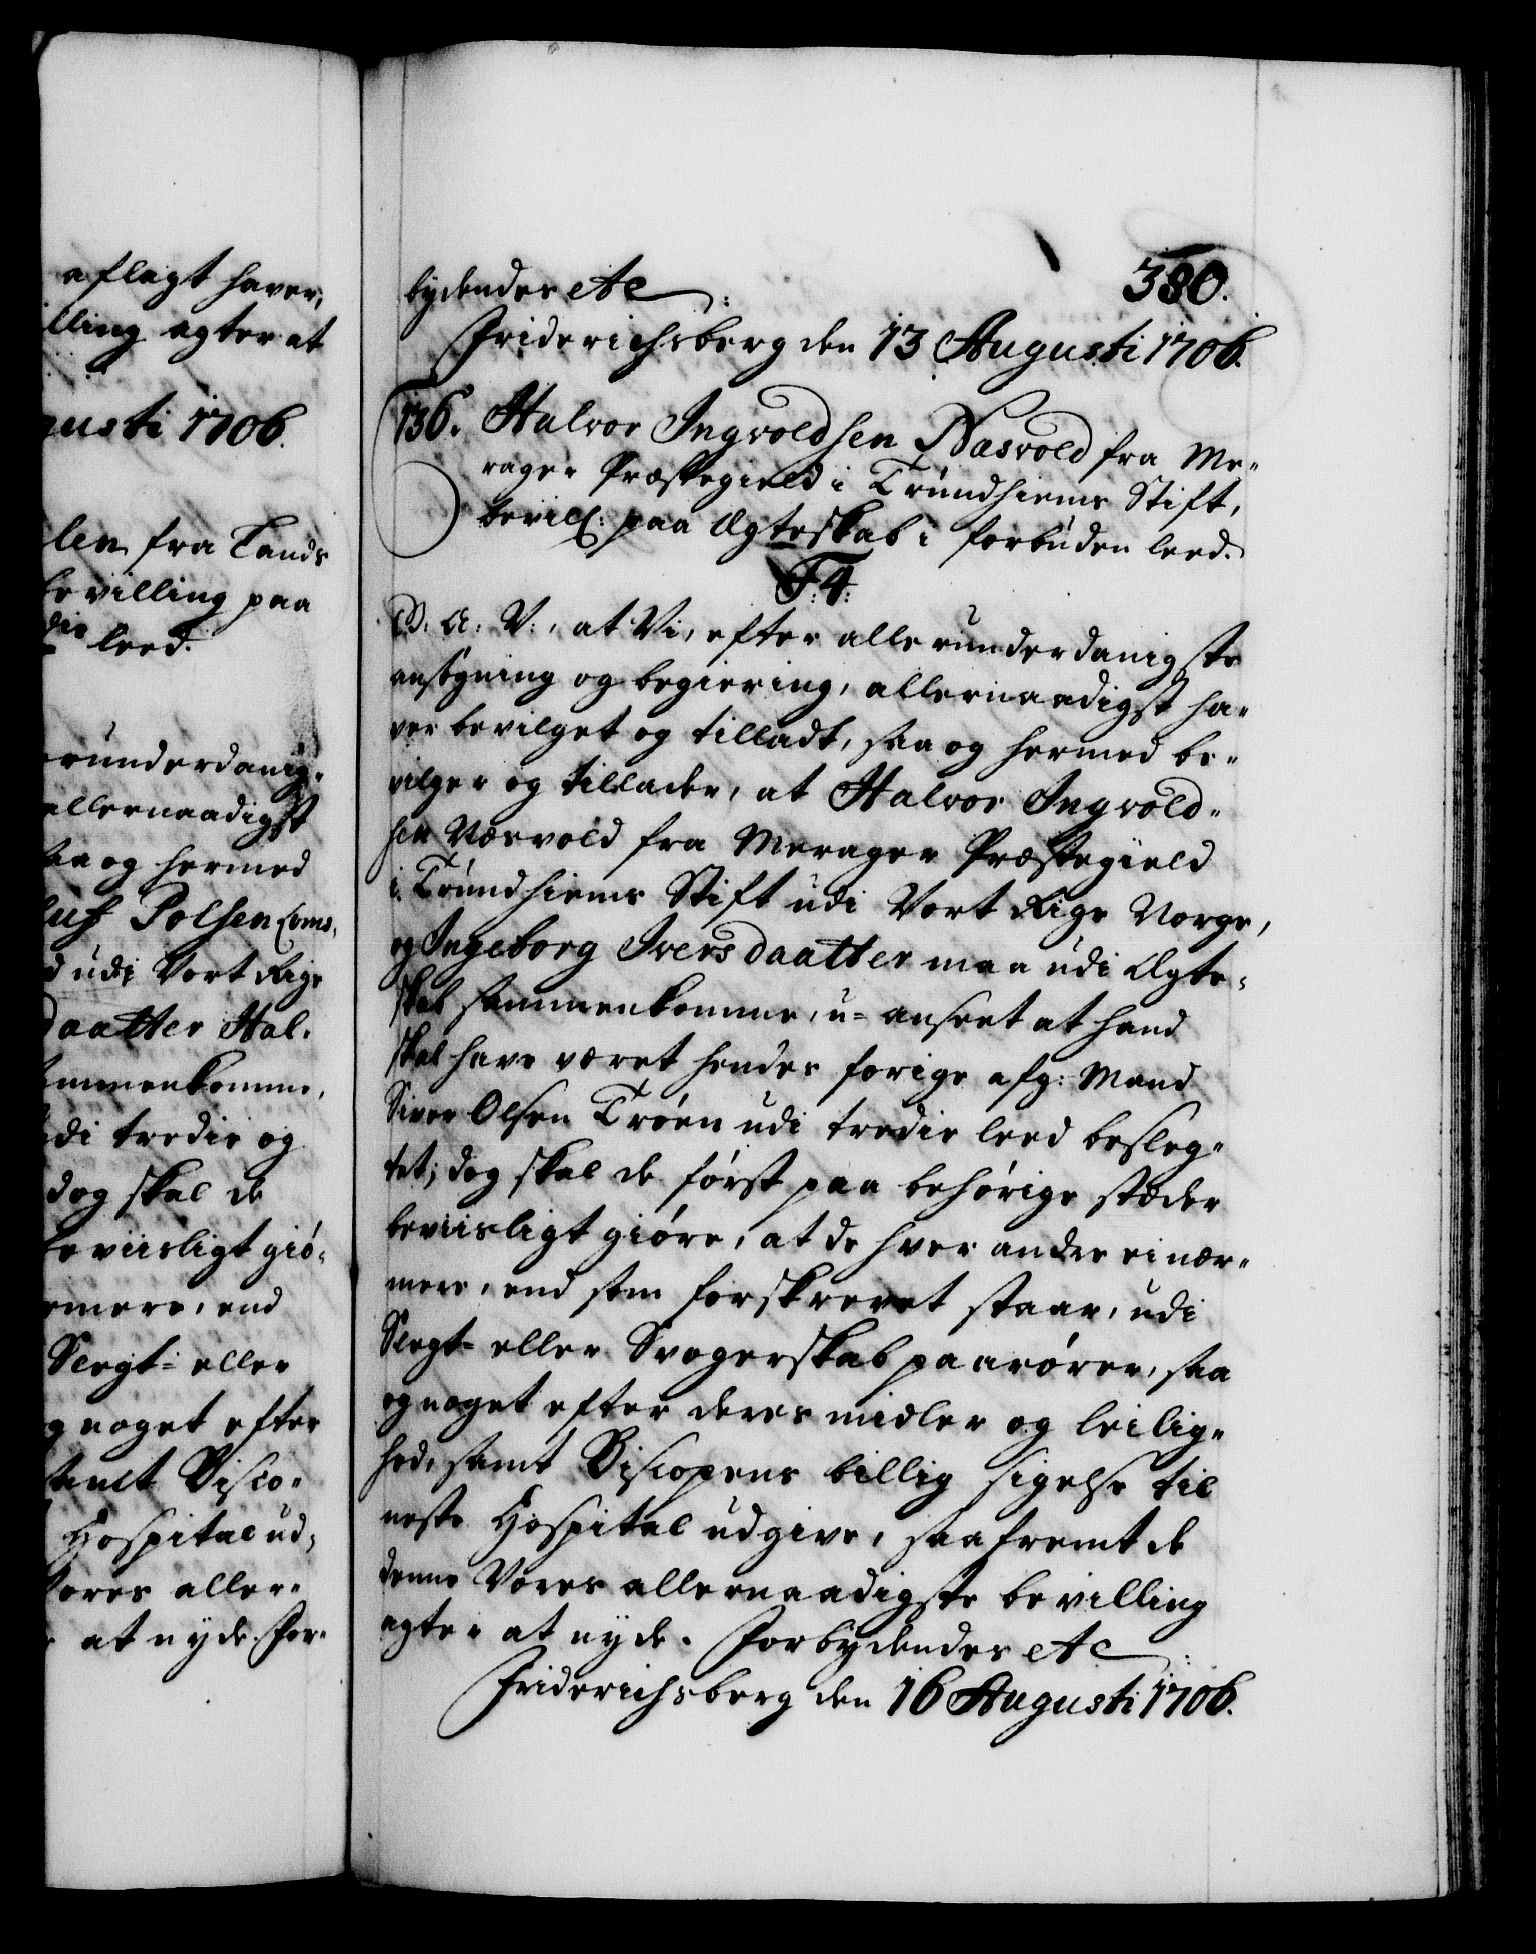 aflagt haver,
lling agter at
gusti 1706.
len fra Lands
bevilling paa
die leed.
runderdanig-
allernaadigst
saa og hermed
luf Polsen Loms,
d udi Vort Rige
daatter Hal.
ammenkomme,
udi tredie og
dog skal de
beviisligt giö-
ermere, end
Slegt- eller
og noget efter
samt Bisco-
Hospital ud-
Vores aller-
at nyde. For-
380.
bydendes etc:
Friderichsberg den 13 Augusti 1706.
136. Halvor Ingvoldsen Næsvold fra Me-
rager Præstegield i Trundhiems Stift,
bevill: paa Ægteskab i forbuden leed.
F: 4:
G. A. V:, at Vi, efter allerunderdanigste
ansögning og begiering, allernaadigst ha-
ver bevilget og tilladt, saa og hermed be-
vilger og tillader, at Halvor Ingvold-
sen Næsvold fra Merager Præstegield
i Trundhiems Stift udi Vort Rige Norge,
og Ingeborg Iversdaatter maa udi Ægte-
skab sammenkomme, u-anseet at hand
skal have været hendes forige afg: Mand
Siver Olsen Tröen udi tredie leed besleg-
tet; dog skal de först paa behörige stæder
beviisligt giöre, at de hver andre ei nær-
mere, end som forskrevet staar, udi
Slegt- eller Svogerskab paarörer, saa
og noget efter deres midler og leilig-
hed, samt Biscopens billig sigelse til
neste Hospital udgive, saafremt de
denne Vores allernaadigste bevilling
agter at nyde. Forbydendes etc:
Friderichsberg den 16 Augusti 1706.